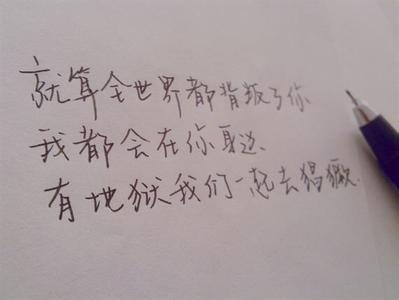 就算全世界都背叛了你
我都会在你身边、
有地狱我们一起去猖獗.